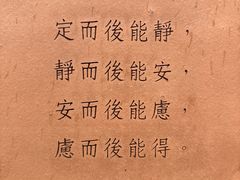 定而後能靜，
靜而後能安，
安而後能慮，
慮而後能得。